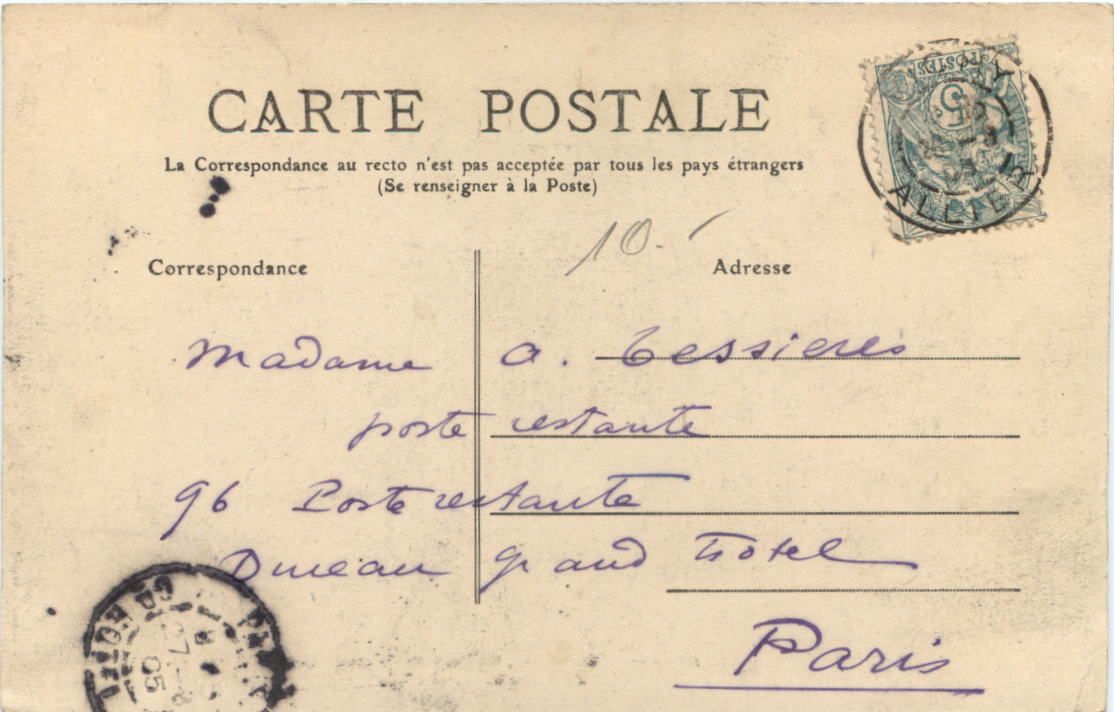 CARTE POSTALE
La Correspondance au recto n'est pas acceptée par tous les pays étrangers
(Se renseigner à la Poste)
POSTES
5
ALLIER
10.-
Correspondance
Adresse
Madame a. Tessieres
poste restante
96 Poste restante
Bureau grand Hotel
Paris
PARIS
GD HOTEL
05